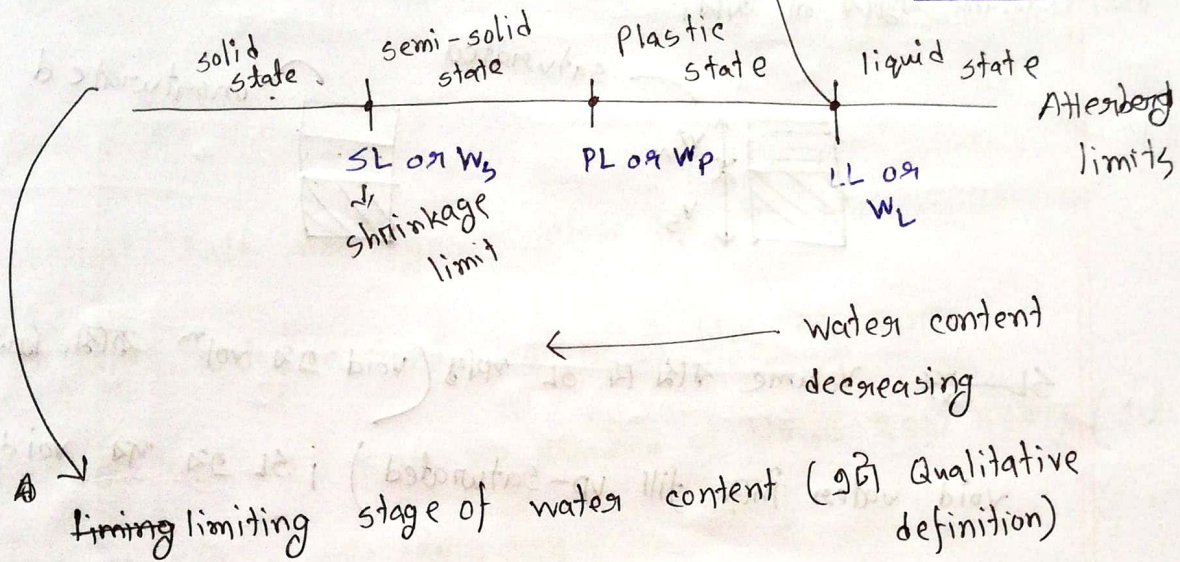 solid state
semi-solid state
Plastic state
liquid state
Atterberg limits
SL or Ws
PL or Wp
LL or WL
↓
shrinkage limit
← water content decreasing
limiting stage of water content (এটা Qualitative definition)